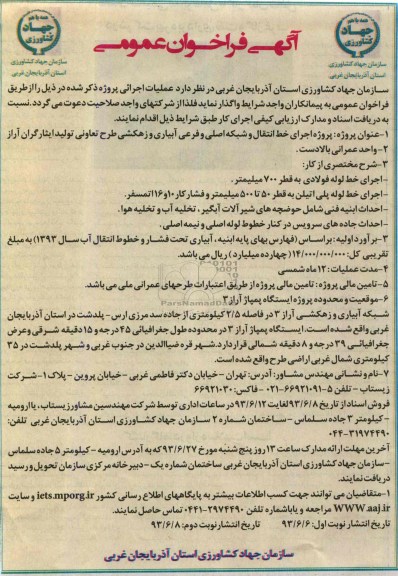 همه با هم
جهاد
کشاورزی
سازمان جهاد کشاورزی
استان آذربایجان غربی
آگهی فراخوان عمومی
سازمان جهاد کشاورزی استان آذربایجان غربی در نظر دارد عملیات اجرائی پروژه ذکر شده در ذیل را از طریق
فراخوان عمومی به پیمانکاران واجد شرایط واگذار نماید فلذا از شرکتهای واجد صلاحیت دعوت می گردد. نسبت
به دریافت اسناد و مدارک ارزیابی کیفی اجرای کار طبق شرایط ذیل اقدام نمایند.
۱-عنوان پروژه: پروژه اجرای خط انتقال و شبکه اصلی و فرعی آبیاری و زهکشی طرح تعاونی تولید ایثارگران آراز
۲-واحد عمرانی بالادست.
۳-شرح مختصری از کار:
-اجرای خط لوله فولادی به قطر ۷۰۰ میلیمتر.
-اجرای خط لوله پلی اتیلن به قطر ۵۰ تا ۵۰۰ میلیمتر و فشار کار ۱۰و۱۶اتمسفر.
-احداث ابنیه فنی شامل حوضچه های شیر آلات آبگیر، تخلیه آب و تخلیه هوا.
-احداث جاده های سرویس در کنار خطوط لوله اصلی و نیمه اصلی.
۳-برآورد اولیه: براساس (فهارس بهای پایه ابنیه، آبیاری تحت فشار و خطوط انتقال آب سال ۱۳۹۳) به مبلغ
تقریبی کل: ۱۴/۰۰۰/۰۰۰/۰۰۰ (چهارده میلیارد) ریال می باشد.
۴-مدت عملیات: ۱۲ ماه شمسی
۵-تامین مالی پروژه: تامین مالی پروژه از طریق اعتبارات طرحهای عمرانی ملی می باشد.
۶-موقعیت و محدوده پروژه ایستگاه پمپاژ آراز ۳
شبکه آبیاری و زهکشی آراز ۳ در فاصله ۲/۵ کیلومتری از جاده سد مرزی ارس - پلدشت در استان آذربایجان
غربی واقع شده است. ایستگاه پمپاژ آراز ۳ در محدوده طول جغرافیائی ۴۵ درجه و ۱۵ دقیقه شرقی وعرض
جغرافیائی ۳۹ درجه و ۸ دقیقه شمالی قراردارد. شهر قره ضیاالدین در جنوب غربی و شهر پلدشت در ۳۵
کیلومتری شمال غربی اراضی طرح واقع شده است.
۷-نام و نشانی مهندس مشاور: آدرس: تهران - خیابان دکتر فاطمی غربی - خیابان پروین - پلاک ۱- شرکت
زیستاب - تلفن ۵-۶۶۹۲۱۰۹۱-۰۲۱ - فاکس: ۶۶۹۲۱۰۳۰
فروش اسناد از تاریخ ۹۳/۶/۸ لغایت ۹۳/۶/۱۲ در ساعات اداری توسط شرکت مهندسین مشاور زیستاب، یا ارومیه
- کیلومتر ۳ جاده سلماس - ساختمان شماره ۲ سازمان جهاد کشاورزی استان آذربایجان غربی تلفن:
۰۴۴-۳۱۹۷۴۴۹۰
آخرین مهلت ارائه مدارک ساعت ۱۳ روز پنج شنبه مورخ ۹۳/۶/۲۷ که به آدرس ارومیه - کیلومتر ۵ جاده سلماس
- سازمان جهاد کشاورزی استان آذربایجان غربی ساختمان شماره یک - دبیرخانه مرکزی سازمان تحویل و رسید
دریافت نمایند.
۱-متقاضیان می توانند جهت کسب اطلاعات بیشتر به پایگاههای اطلاع رسانی کشور iets.mporg.ir و سایت
WWW.aaj.ir مراجعه و یا با شماره تلفن ۲۹۷۴۴۹۰-۰۴۴۱ تماس حاصل نمایند.
تاریخ انتشار نوبت اول: ۹۳/۶/۶ تاریخ انتشار نوبت دوم: ۹۳/۶/۸
سازمان جهاد کشاورزی استان آذربایجان غربی